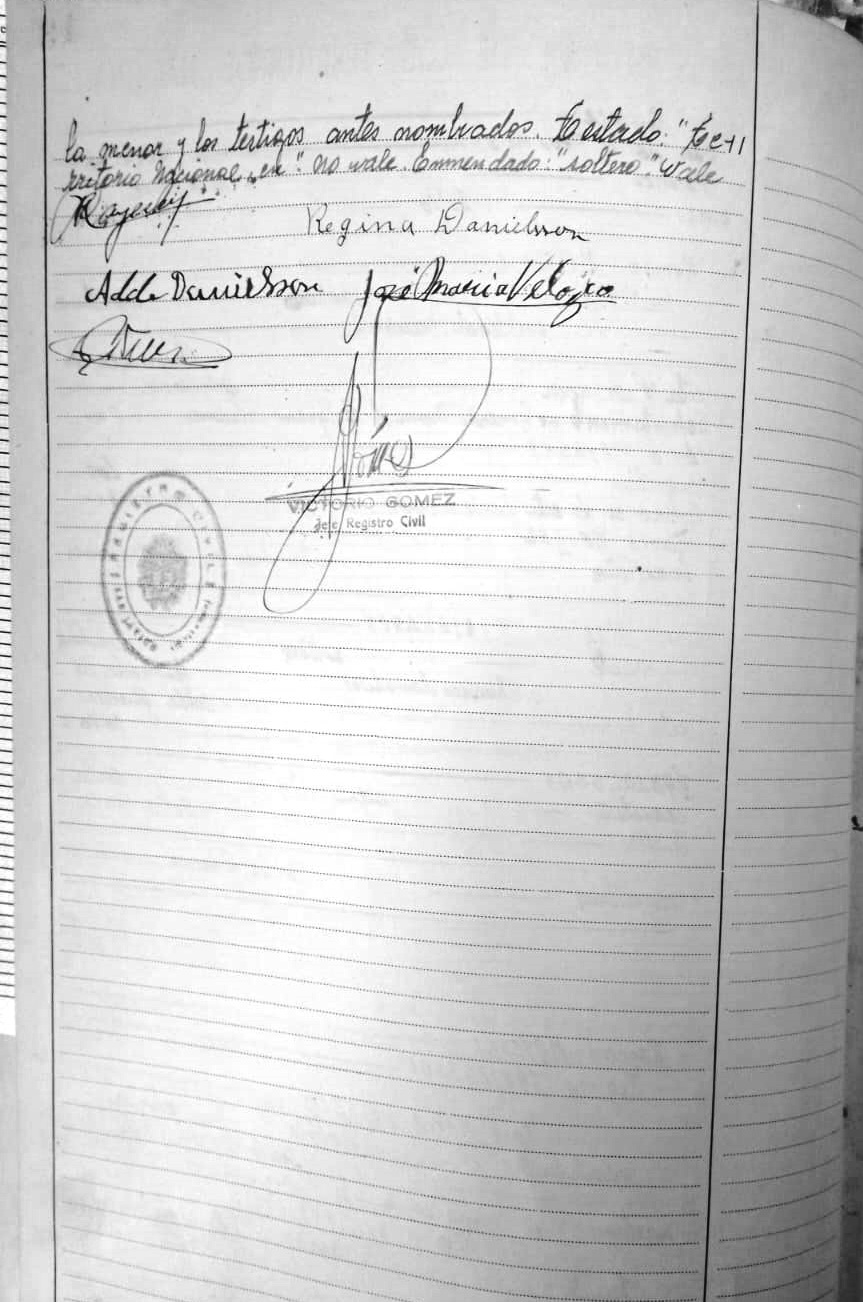 la menor y los testigos antes nombrados. Testado: "Te-
rritorio Nacional en". no vale. Enmendado: "soltero". Vale
Regina Danielsson
Alda Danielsson José Maria Veloza
VICTORIO GOMEZ
Jefe Registro Civil